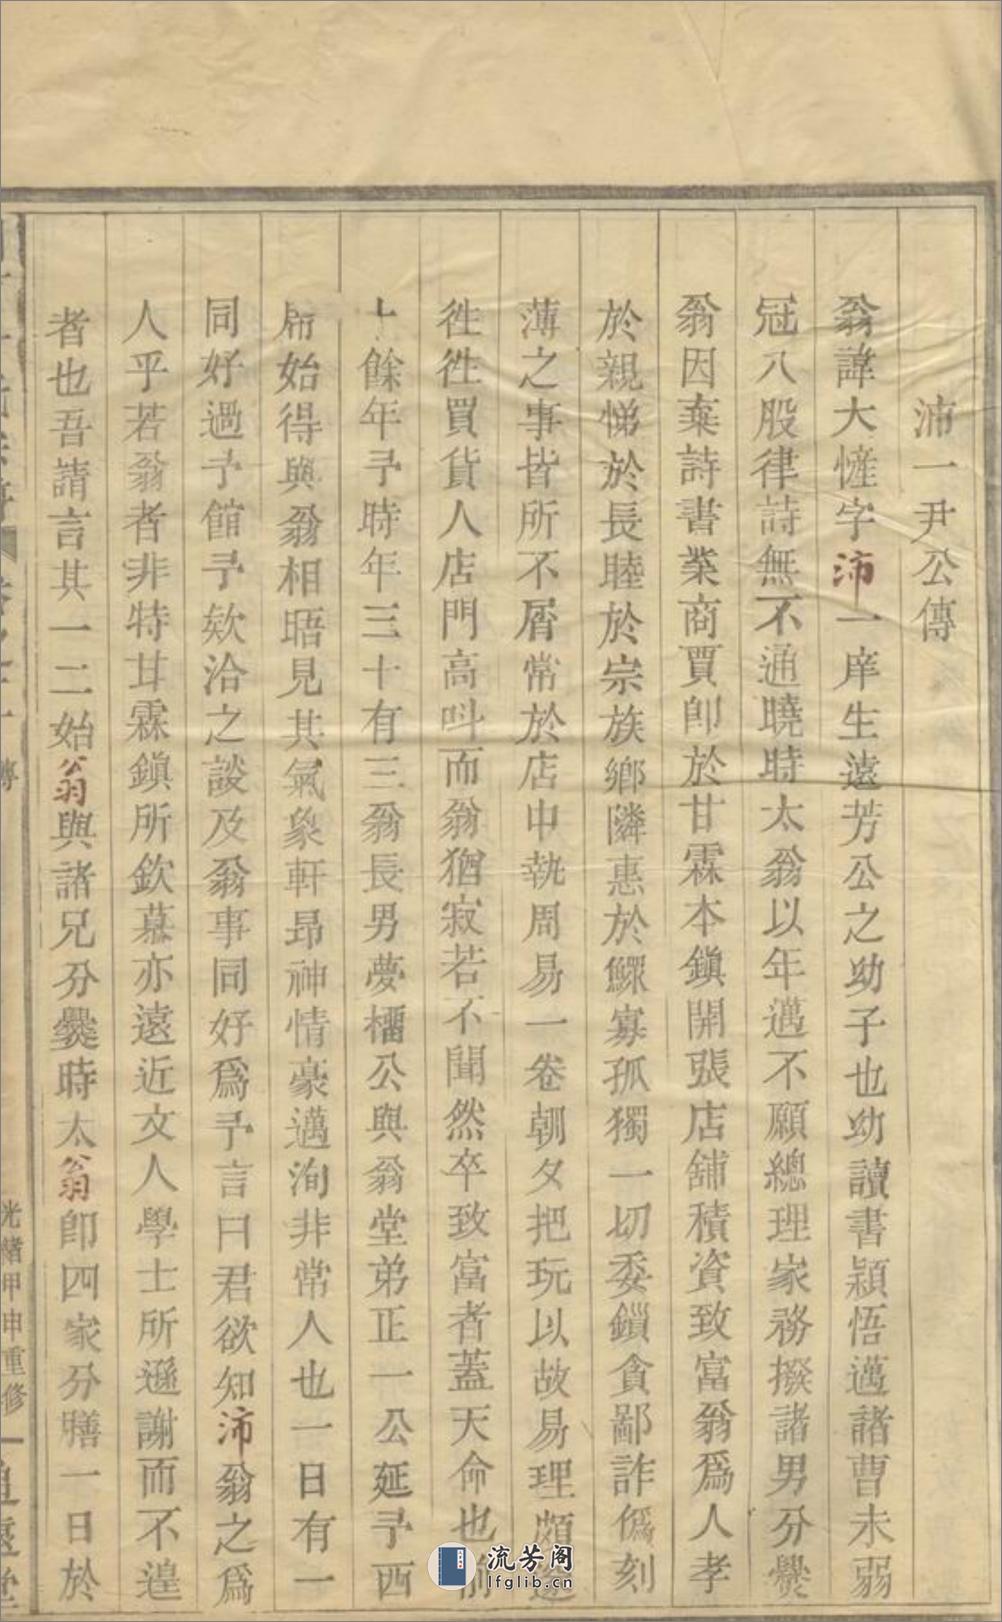 沛一尹公傳
翁諱大㦃字沛一庠生遠芳公之幼子也幼讀書穎悟邁諸曹未弱
冠八股律詩無不通曉時太翁以年邁不願總理家務撥諸男分爨
翁因棄詩書業商賈卽於甘霖本鎭開張店舖積資致富翁爲人孝
於親悌於長睦於宗族鄕隣惠於鰥寡孤獨一切委鎻貪鄙詐僞刻
薄之事皆所不屑常於店中執周易一卷朝夕把玩以故易理頗邃
徃徃買貨人店門高呌而翁猶寂若不聞然卒致富者蓋天命也前
十餘年予時年三十有三翁長男夢櫺公與翁堂弟正一公延予西
席始得與翁相晤見其氣象軒昻神情豪邁洵非常人也一日有一
同好過予館予欵洽之談及翁事同好爲予言曰君欲知沛翁之爲
人乎若翁者非特甘霖鎭所欽慕亦遠近文人學士所遜謝而不遑
者也吾請言其一二始翁與諸兄分爨時太翁卽四家分膳一日於
傳
光緖甲申重修
追遠堂
流芳阁
lfglib.cn